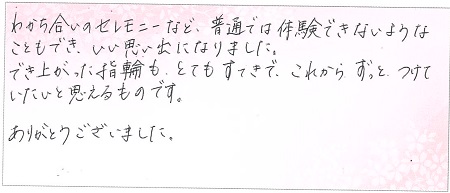 わかち合いのセレモニーなど、普通では体験できないような
こともでき、いい思い出になりました。
でき上がった指輪も、とてもすてきで、これからずっと、つけて
いたいと思えるものです。
ありがとうございました。